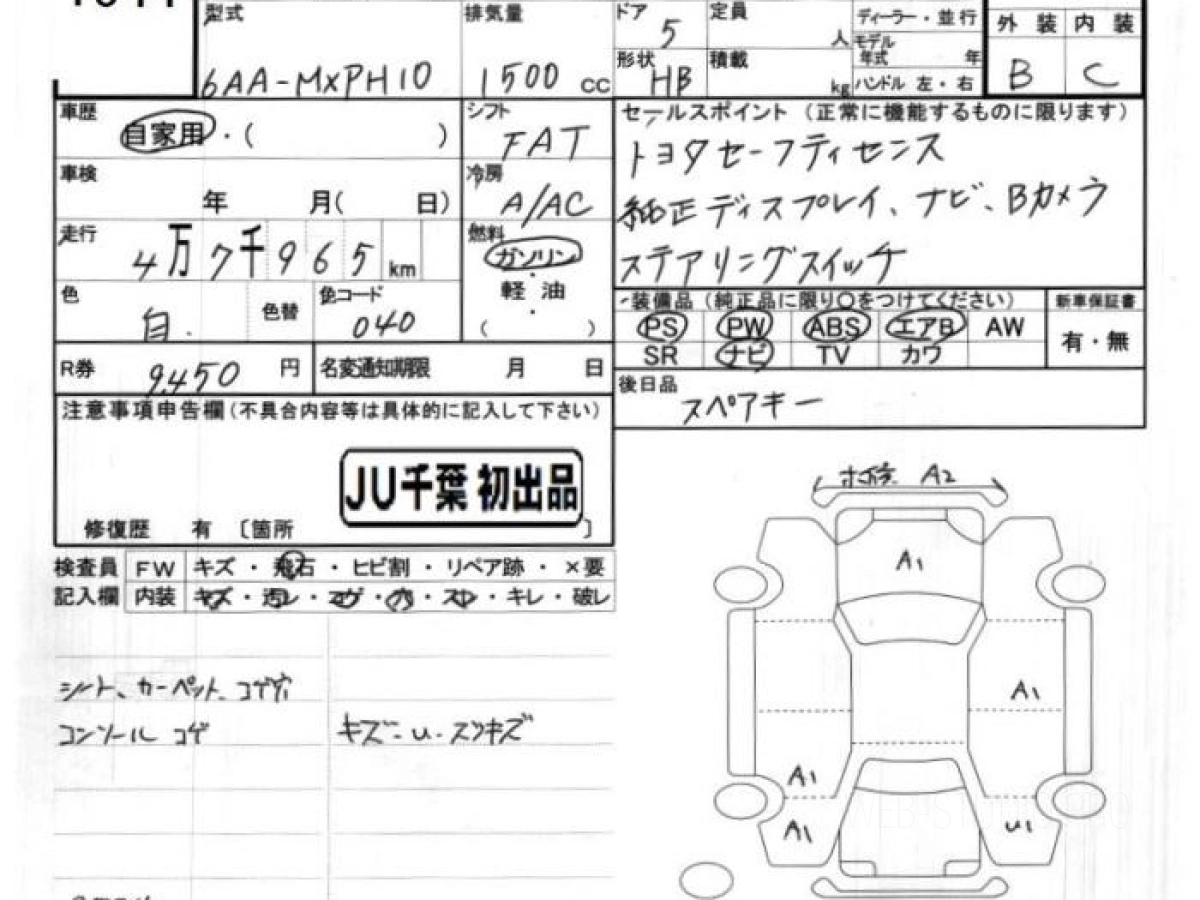 型式 排気量 ドア 5 定員 人 ディーラー・並行 外装 内装
6AA-MXPH10 1500 cc 形状 HB 積載 kg モデル年式 年 ハンドル 左・右 B C
車歴 自家用・( ) シフト FAT
セールスポイント (正常に機能するものに限ります)
トヨタセーフティセンス
車検 年 月( 日) 冷房 A/AC
純正ディスプレイ、ナビ、Bカメラ
走行 4万7千965km 燃料 ガソリン・軽油・( )
ステアリングスイッチ
色 白. 色替 色コード 040
装備品 (純正品に限り〇をつけてください) 新車保証書
PS PW ABS エアB AW 有・無
SR ナビ TV カワ
R券 9,450 円 名変通知期限 月 日
後日品 スペアキー
注意事項申告欄(不具合内容等は具体的に記入して下さい)
JU千葉 初出品
修復歴 有 〔箇所 〕
検査員記入欄 FW キズ・飛石・ヒビ割・リペア跡・×要
内装 キズ・汚レ・コゲ・穴・スレ・キレ・破レ
シート、カーペット、コゲ穴
コンソール コゲ
キズ・U・スリキズ
A2
A1
A1
A1
A1 U1